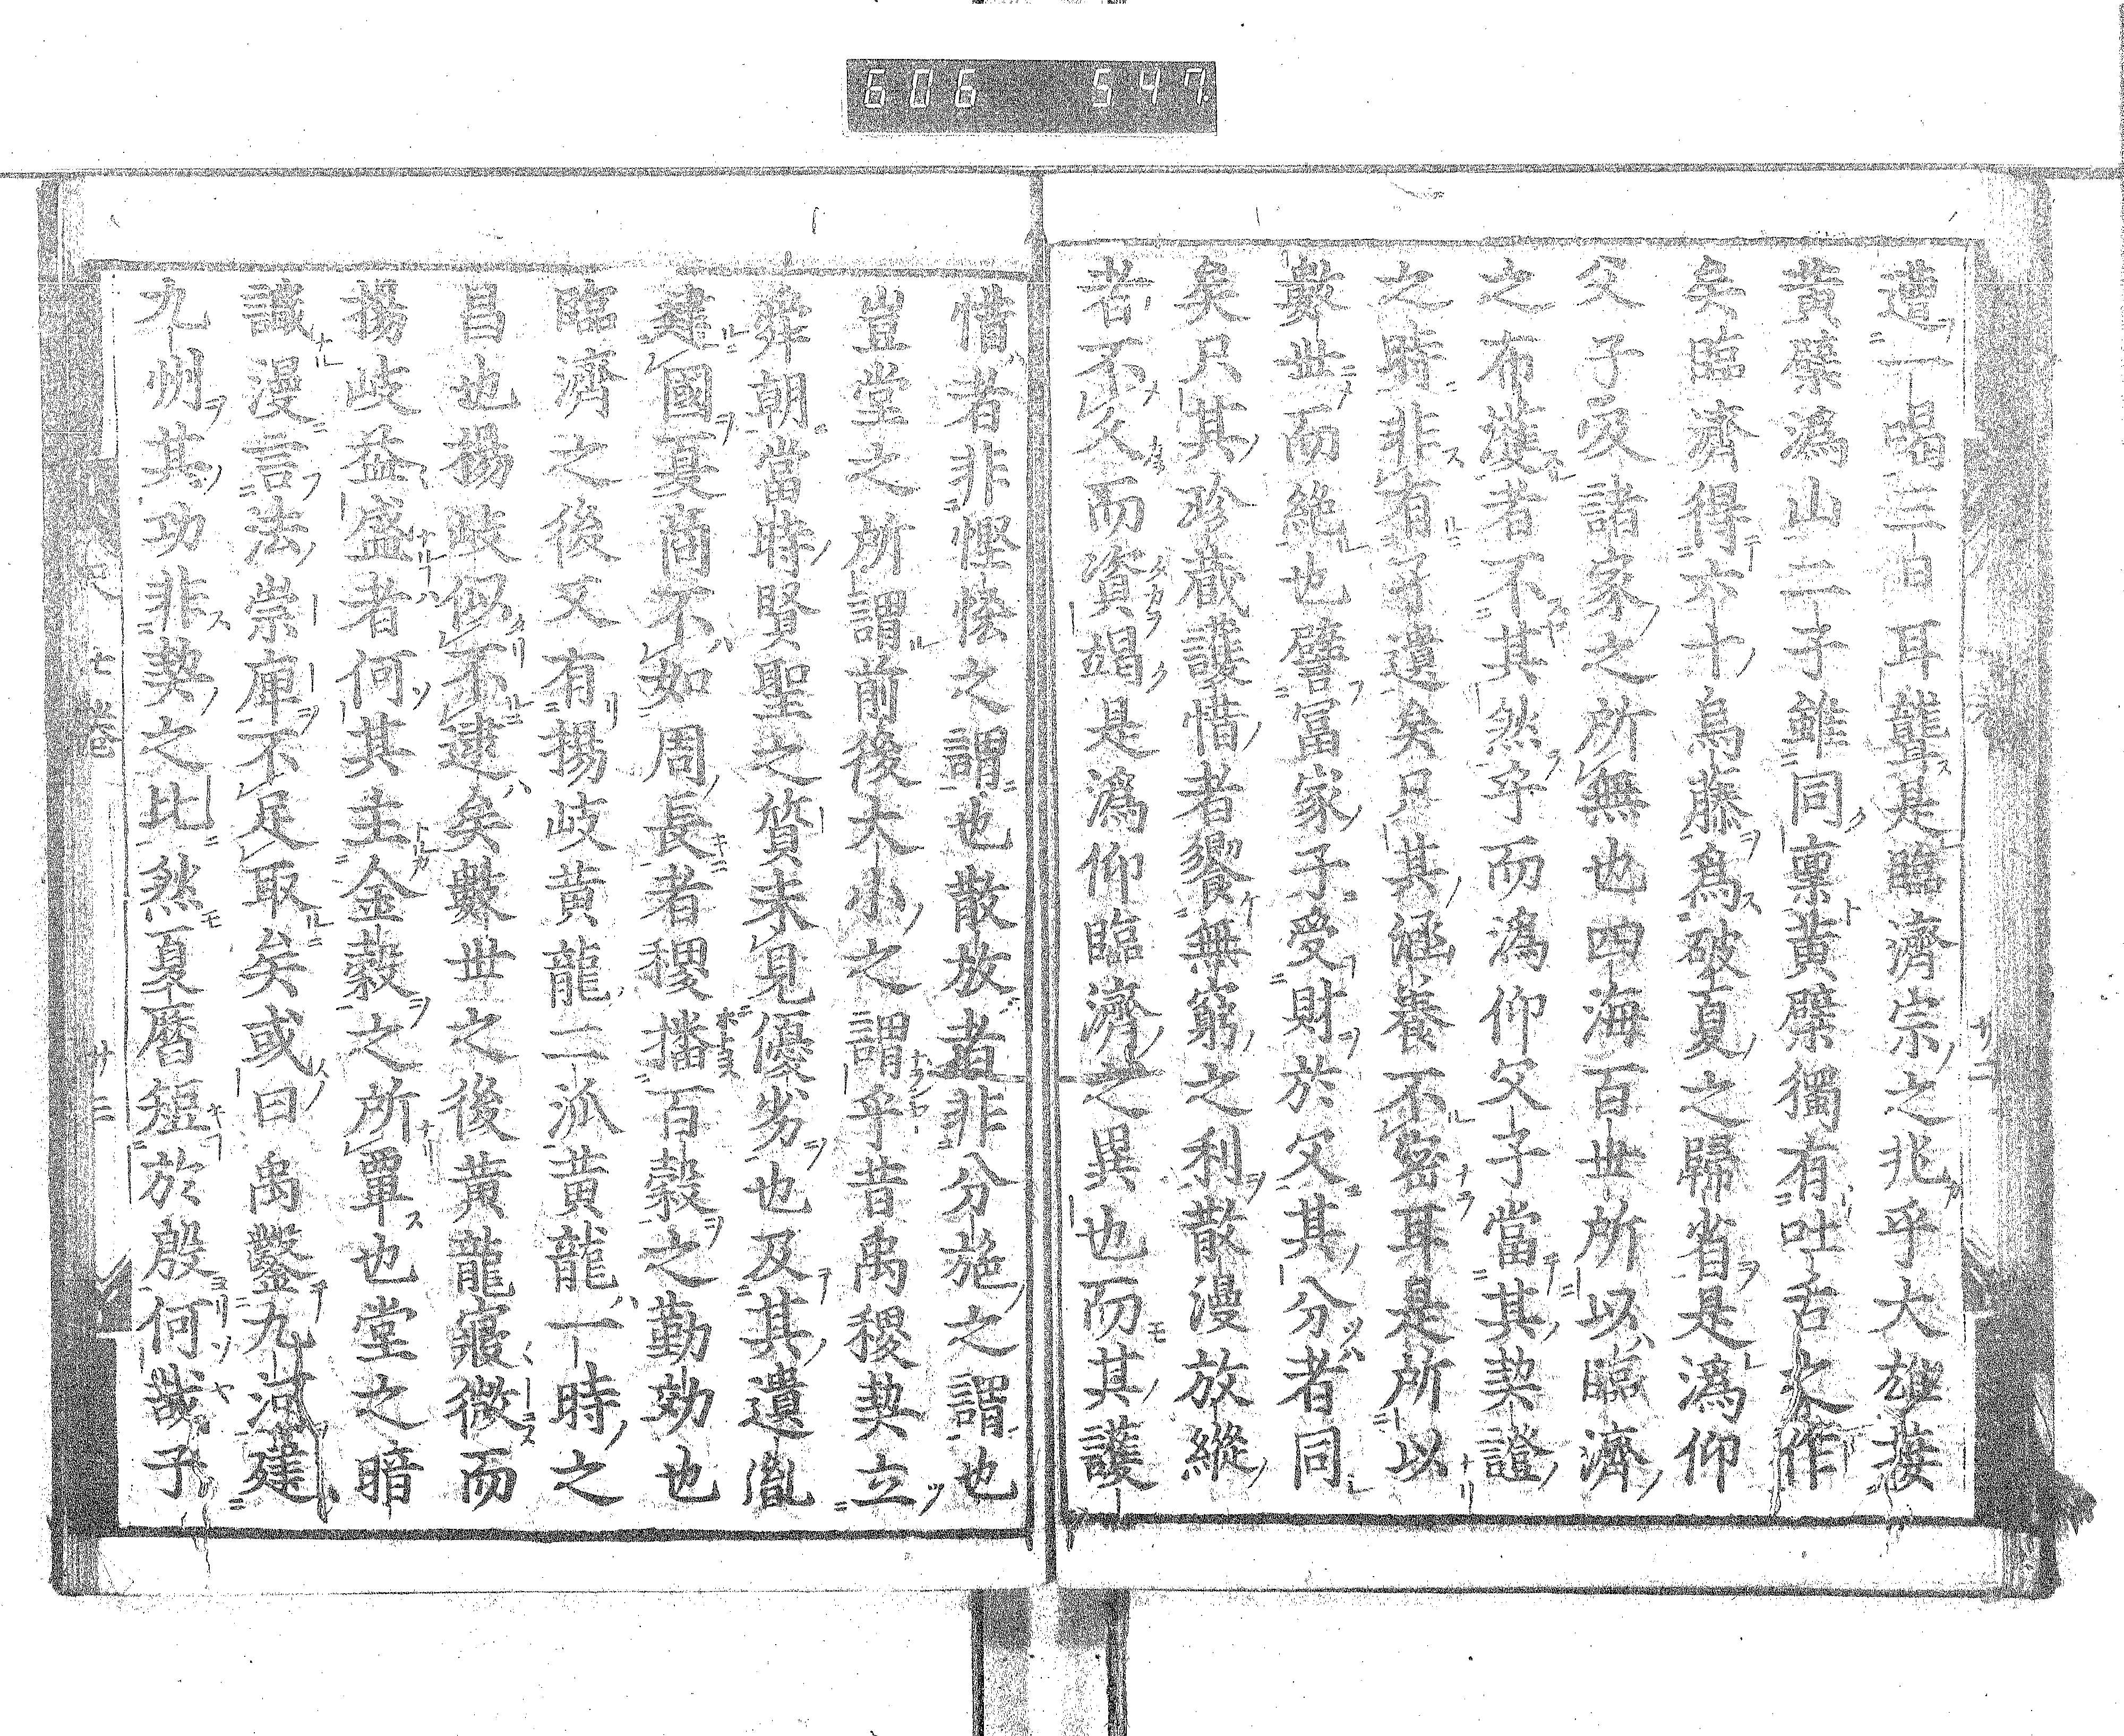 606 547
遭一喝三日耳聾是臨濟宗之兆乎大雄接
黃檗溈山二子雖同稟黃檗獨有吐舌之作
矣臨濟得六十烏藤爲破夏之歸省是溈仰
父子及諸家之所無也四海百世所以臨濟
之布漢者不其然乎而溈仰父子當其契證
之時非有子遺矣只其涵養不密耳是所以
數世而絶也譬富家子受財於父其分者同
矣只其珍藏護惜者饗無窮之利散漫放縱
者不久而資竭是溈仰臨濟之異也而其護
惜者非慳悋之謂也散放者非分施之謂也
豈堂之所謂前後大小之謂乎昔禹稷契立
舜朝當時賢聖之質未見優劣也及其遺胤
建國夏商不如周長者稷播百穀之勤効也
臨濟之後又有楊岐黃龍二派黃龍一時之
昌也楊岐似不逮矣數世之後黃龍寢微而
楊岐益盛者何其主金穀之所覃也堂之暗
識漫言法崇庫不足取矣或曰禹鑿九河建
九州其功非契之比然夏曆短於殷何哉予
七卷
廿二